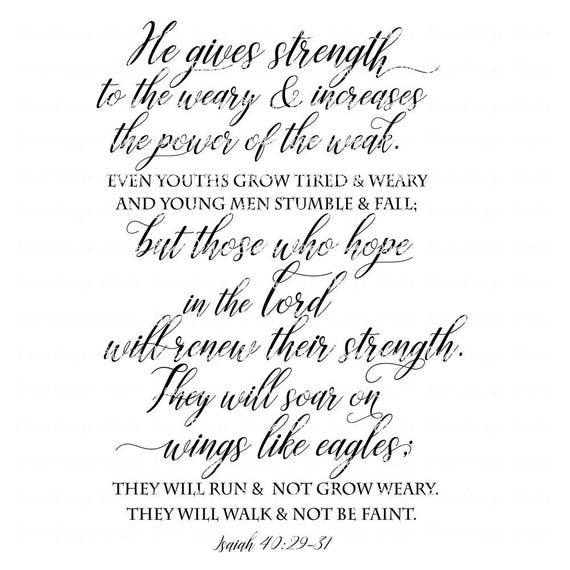 He gives strength
to the weary & increases
the power of the weak.
EVEN YOUTHS GROW TIRED & WEARY
AND YOUNG MEN STUMBLE & FALL;
but those who hope
in the Lord
will renew their strength.
They will soar on
wings like eagles;
THEY WILL RUN & NOT GROW WEARY.
THEY WILL WALK & NOT BE FAINT.
Isaiah 40:29-31